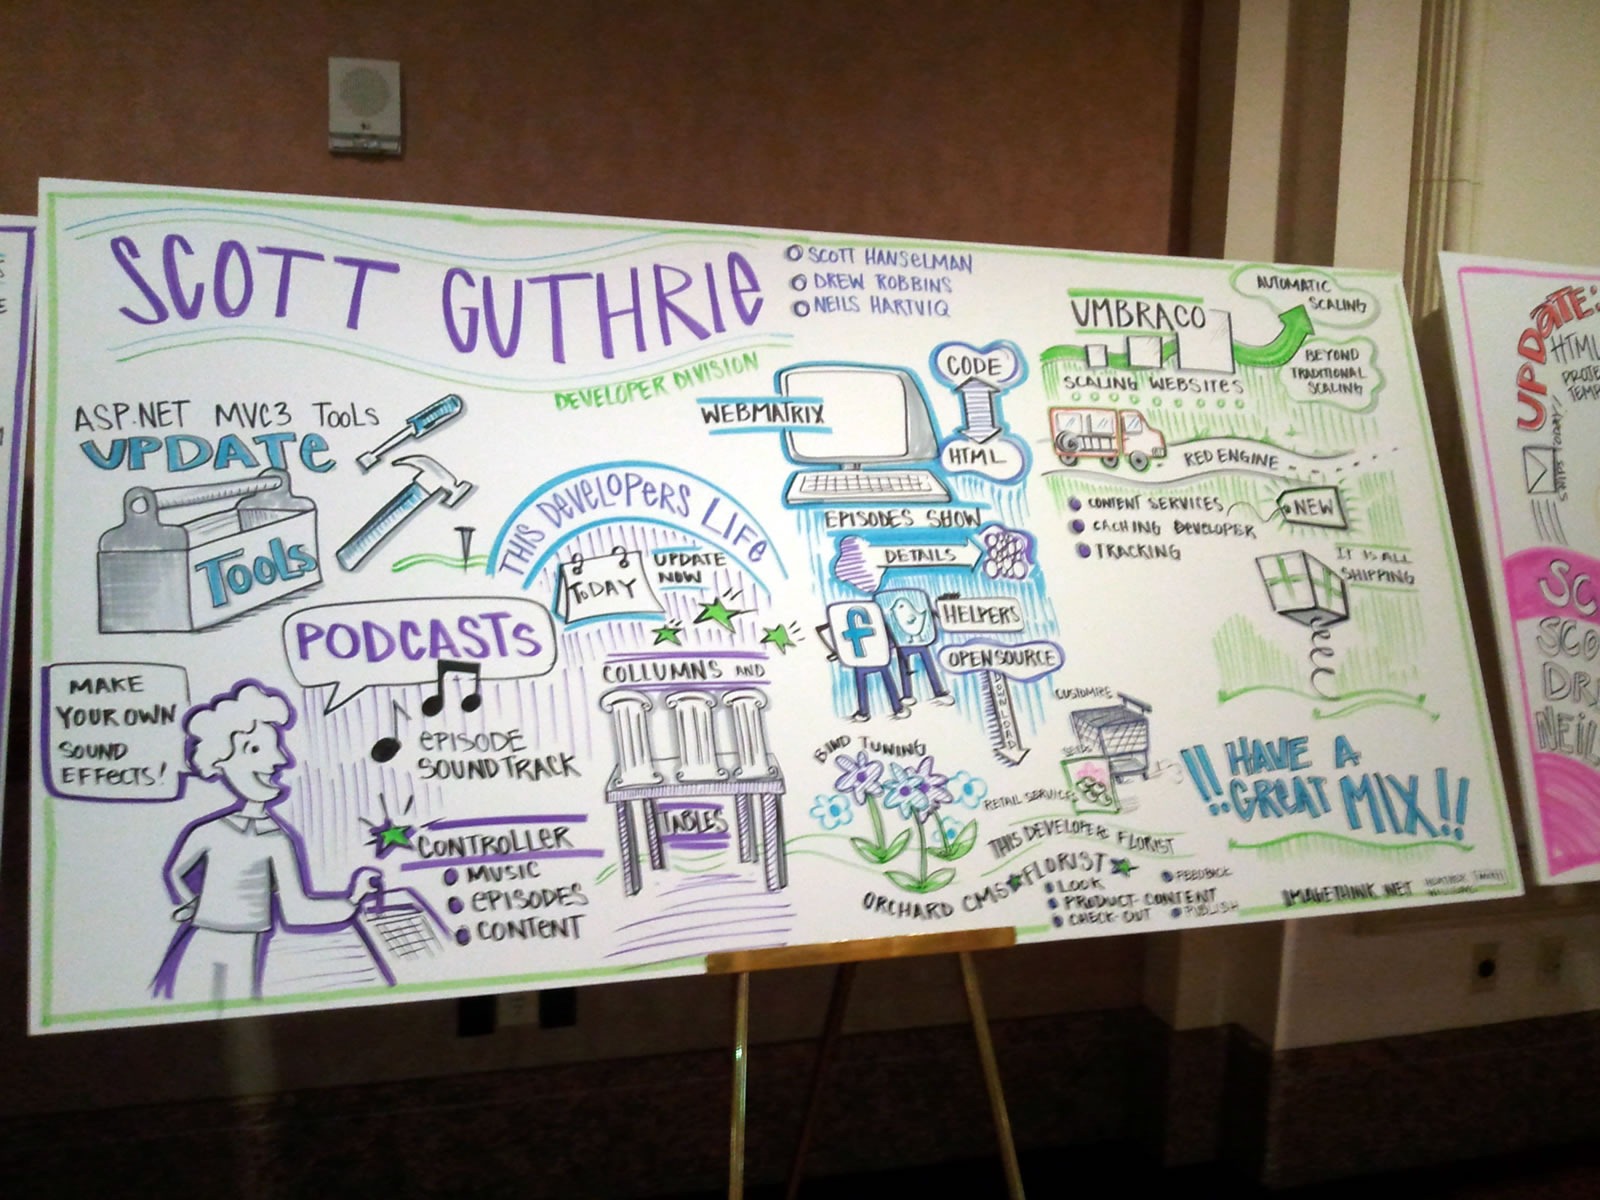 SCOTT GUTHRIE
DEVELOPER DIVISION
SCOTT HANSELMAN
DREW ROBBINS
NEILS HARTVIQ
ASP.NET MVC3 TOOLS
UPDATE
TOOLS
PODCASTS
MAKE
YOUR OWN
SOUND
EFFECTS!
EPISODE
SOUNDTRACK
CONTROLLER
MUSIC
EPISODES
CONTENT
THIS DEVELOPERS LIFE
TODAY
UPDATE
NOW
COLLUMNS AND
TABLES
WEBMATRIX
CODE
HTML
EPISODES SHOW
DETAILS
f
HELPERS
OPEN SOURCE
DOWNLOAD
BIND TUNING
ORCHARD CMS FLORIST
CUSTOMIZE
SEEDS
RETAIL SERVICES
THIS DEVELOPERS FLORIST
LOOK
PRODUCT-CONTENT
CHECK-OUT
FEEDBACK
PUBLISH
UMBRACO
AUTOMATIC
SCALING
BEYOND
TRADITIONAL
SCALING
SCALING WEBSITES
RED ENGINE
CONTENT SERVICES
CACHING DEVELOPER
TRACKING
NEW
IT IS ALL
SHIPPING
!! HAVE A
GREAT MIX!!
IMAKETHINK.NET
UPDATE:
HTML
PROJE
TEMP
SHIPS TODAY!
SC
SCO
DR
NEIL